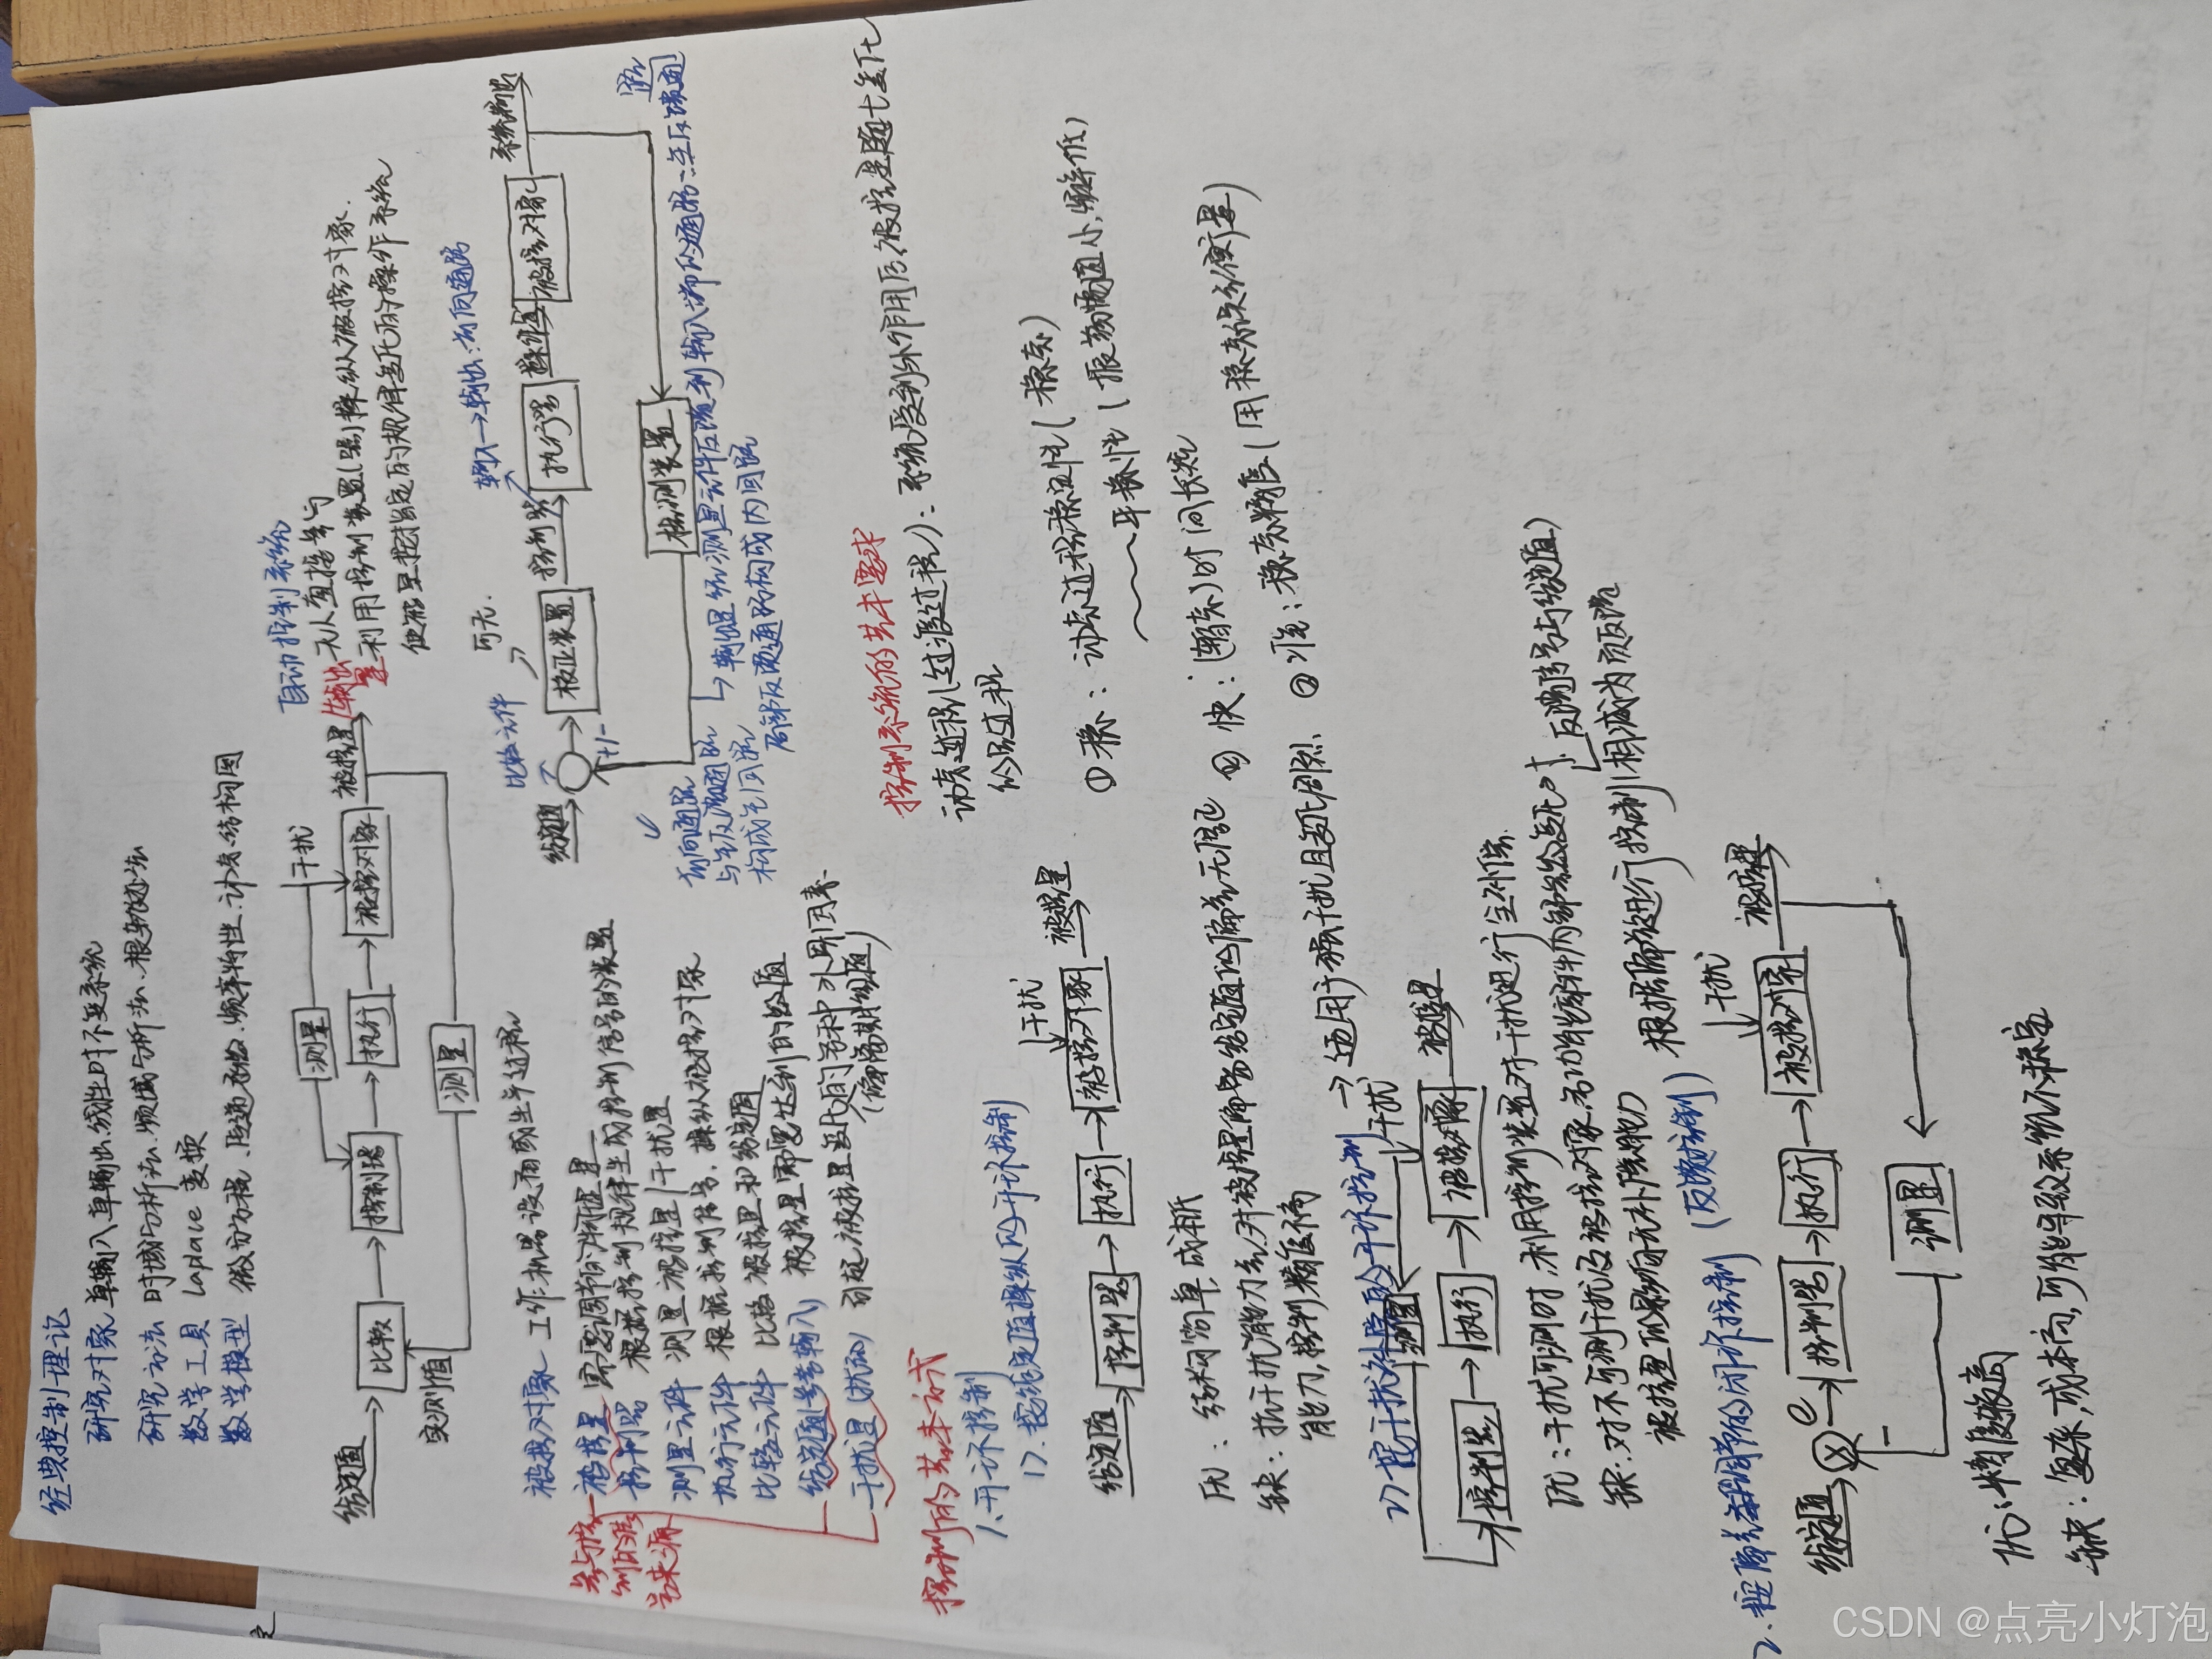 经典控制理论
研究对象 单输入单输出线性时不变系统
研究方法 时域分析法、频域分析法、根轨迹法
数学工具 Laplace 变换
数学模型 微分方程、传递函数、频率特性、动态结构图
给定值
比较
控制器
执行
被控对象
被控量
测量
干扰
测量
实测值
输出量
自动控制系统
无人直接参与
利用控制装置(器)操纵被控对象.
使被控量按指定的规律变化的操作系统
被控对象 工作机器设备或生产过程
被控量 需要调节的物理量
控制器 根据控制规律生成控制信号的装置
测量元件 测量被控量/干扰量
执行元件 根据控制信号,操纵被控对象
比较元件 比较被控量和给定值
给定值(参考输入) 被控量需要达到的给值
干扰量(扰动) 引起被控量变化的各种外界因素
(偏离期望值)
参与控
制的信
号来源
给定值
比较元件
可无.
校正装置
控制器
执行器
操作量
被控对象
系统输出
检测装置
+/-
输入→输出:前向通路
前向通路
与主反馈通路
构成主回路
输出量经测量元件反馈到输入端的通路:主反馈回
路
局部反馈通路构成内回路
控制的基本方式
1.开环控制
1).按给定值操纵的开环控制
给定值
控制器
执行
被控对象
干扰
被控量
优:结构简单,成本低
缺:抗干扰能力差,对被控量偏离给定值的偏差无调节
能力,控制精度低
2)按干扰补偿的开环控制
→适用于有干扰且变化剧烈、
测量
干扰
控制器
执行
被控对象
被控量
优:干扰可测时,利用控制装置对干扰进行全补偿.
缺:对不可测干扰及被控对象,各功能部件内部参数变化对
被控量的影响自无补偿能力
2.按偏差调节的闭环控制 (反馈控制)
根据偏差进行控制
反馈信号与给定值
相减为负反馈
给定值
e
控制器
执行
被控对象
干扰
被控量
测量
优:精度较高
缺:复杂,成本高,可能导致系统不稳定
控制系统的基本要求
动态过程(过渡过程):系统受到外作用后,被控量随t变化
的全过程
①稳:动态过程稳定性(稳态)
平稳性(振荡幅值小,频率低)
②快:(瞬态)时间长短
③准:稳态精度(用稳态误差衡量)
CSDN @点亮小灯泡